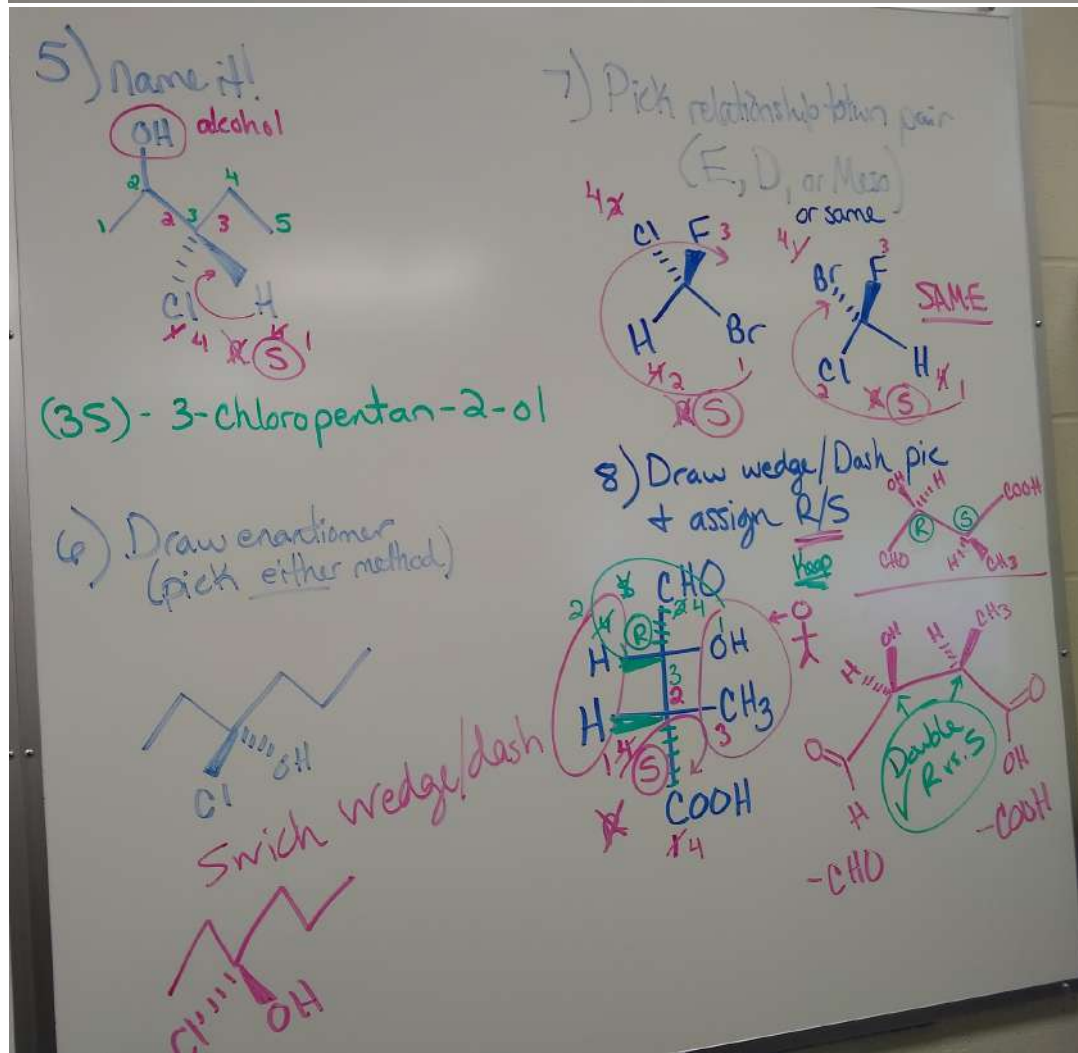 5) Name it!
OH alcohol
2 4
1 2 3 3 5
Cl H
4 1
S
(3S) - 3-chloropentan-2-ol
6) Draw enantiomer
(pick either method)
Cl OH
Swich wedge/dash
Cl OH
7) Pick relationship btwn pair
(E, D, or Meso)
or same
4 Cl F 3
H Br
2 1
S
4 Br F 3
SAME
Cl H
2 1
S
8) Draw wedge/Dash pic
+ assign R/S
Keep
OH H COOH
R S
CHO H CH3
CHO
2 4
R
H OH
3
2
H CH3
1 S 3
COOH
4
H OH H CH3
O O
H OH
Double
✓ R vs. S
-CHO
-COOH